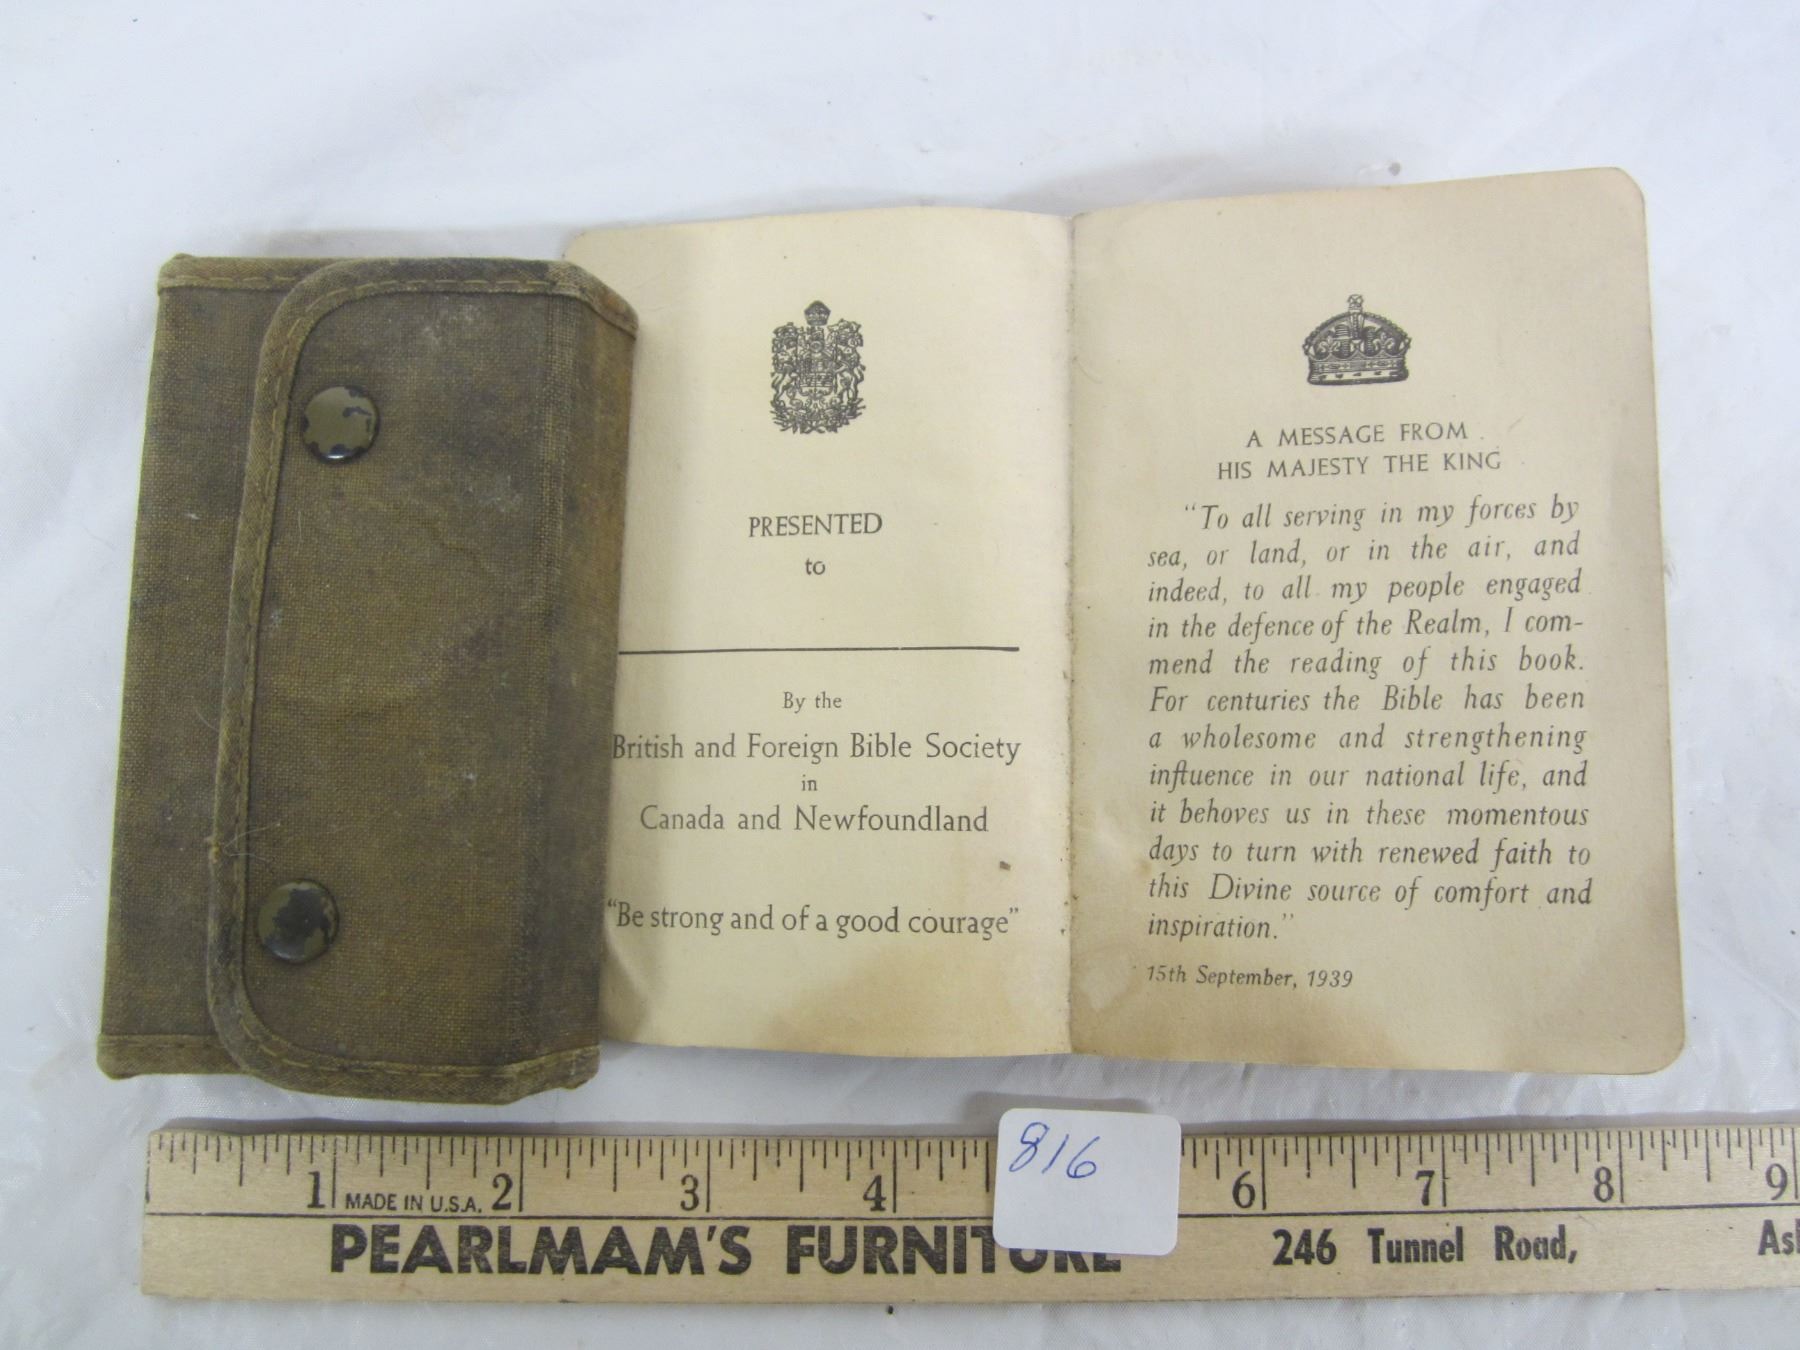 PRESENTED
to
By the
British and Foreign Bible Society
in
Canada and Newfoundland
"Be strong and of a good courage"
A MESSAGE FROM
HIS MAJESTY THE KING
"To all serving in my forces by
sea, or land, or in the air, and
indeed, to all my people engaged
in the defence of the Realm, I com-
mend the reading of this book.
For centuries the Bible has been
a wholesome and strengthening
influence in our national life, and
it behoves us in these momentous
days to turn with renewed faith to
this Divine source of comfort and
inspiration."
15th September, 1939
816
1 MADE IN U.S.A. 2 3 4 6 7 8 9
PEARLMAM'S FURNITURE 246 Tunnel Road,